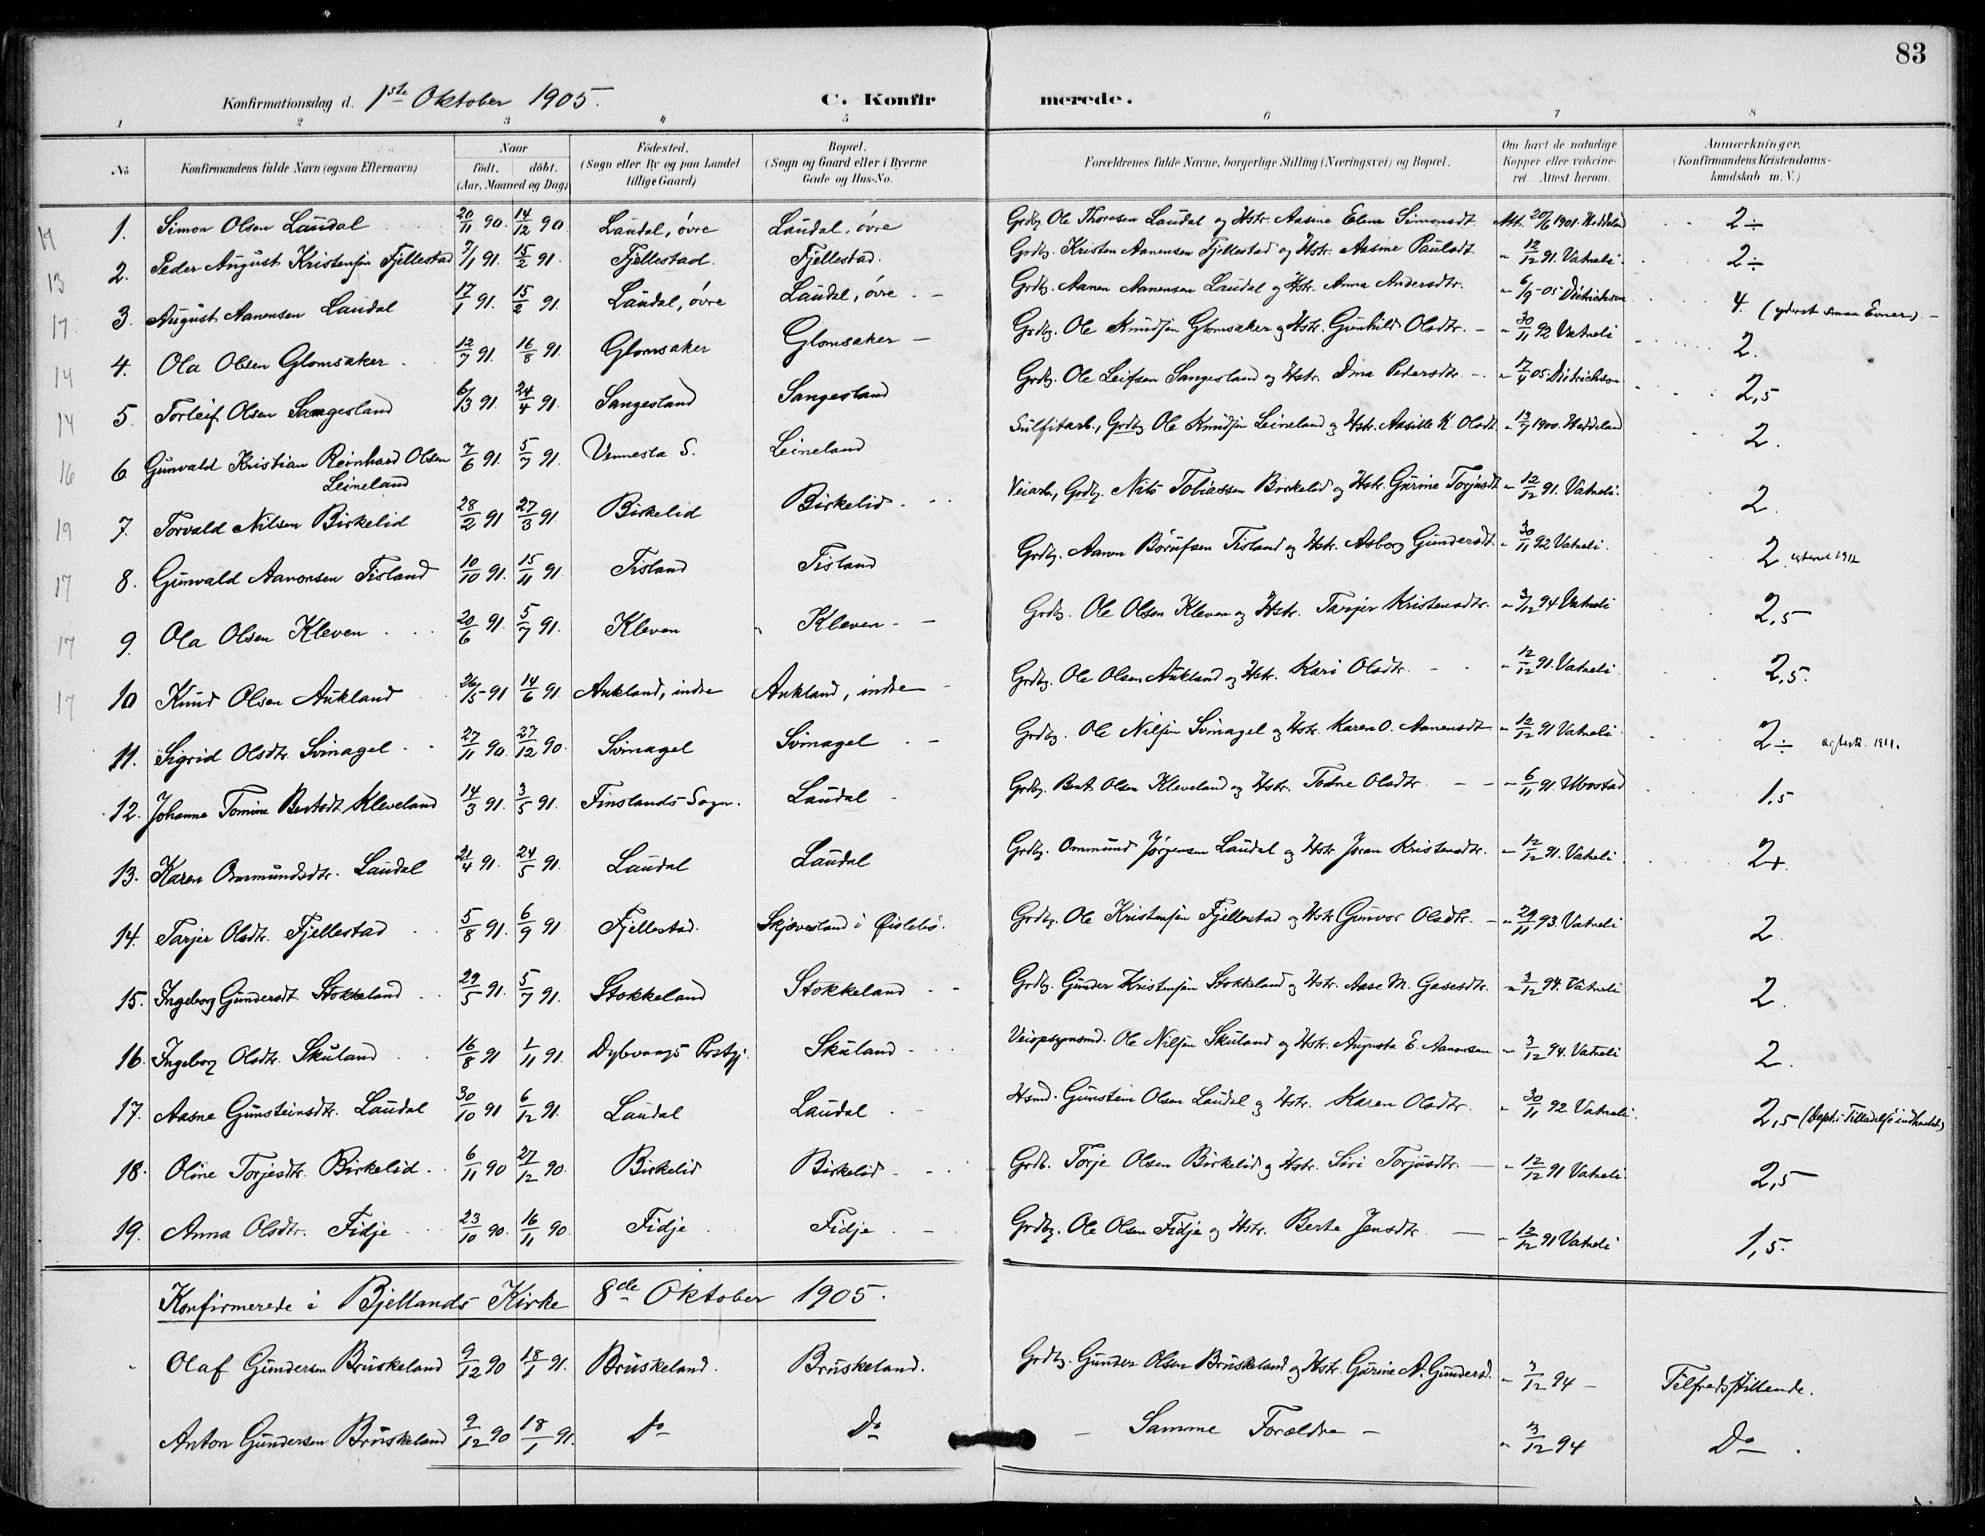 83
Konfirmationsdag d. 1ste Oktober 1905. C. Konfirmerede.
1 2 3 4 5 6 7 8
No Konfirmandens fulde Navn (ogsaa Efternavn) Naar født. døbt. (Aar, Maaned og Dag) Fødested. (Sogn eller By og paa Landet tillige Gaard) Bopæl. (Sogn og Gaard eller i Byerne Gade og Hus-No. Forældrenes fulde Navne, borgerlige Stilling (Næringsvei) og Bopæl. Om havt de naturlige Kopper eller vaccineret Attest herom. Anmærkninger. (Konfirmandens Kristendomskundskab m. V.)
1. Simon Olsen Laudal 20/11 90. 14/12 90 Laudal, øvre Laudal, øvre Grdbg. Ole Thoresen Laudal og Hstr. Aasine Elene Simonsdt. Att. 20/6 1901. Heddeland 2÷
13 2. Peder August Kristensen Fjellestad 7/1 91. 15/2 91. Fjellestad. Fjellestad. Grdbg. Kristen Aanensen Fjellestad og Hstr. Aasine Paulsdt. " 12/12 91. Vatneli. 2÷
17 3. August Aanensen Laudal 17/1 91. 15/2 91 Laudal, øvre Laudal, øvre Grdbg. Aanen Aanensen Laudal og Hstr. Anna Andersdtr. " 6/9-05 Dietrichson 4. (yderst smaa Evner).
14 4. Ola Olsen Glomsaker 12/7 91. 16/8 91. Glomsaker Glomsaker Grdbg. Ole Knudsen Glomsaker og Hstr. Gunhild Olsdtr. " 30/11 92 Vatneli 2.
14 5. Torleif Olsen Sangesland 6/3 91. 24/4 91. Sangesland Sangesland Grdbg. Ole Leifsen Sangesland og Hstr. Dina Pedersdtr. " 17/4 05 Dietrichson 2,5
16 6 Gunvald Kristian Reinhard Olsen Leineland 7/6 91. 5/7 91. Vennesla S. Leineland Sulfitarb., Grdbg Ole Knudsen Leineland og Hstr. K. Olsdt. " 13/7 1900. Heddeland 2.
19 7. Torvald Nilsen Birkelid 28/2 91 27/3 91. Birkelid Birkelid. Veiarb., Grdbg. Nils Tobiassen Birkelid og Hstr. Gurine Torjusdt. " 12/12 91. Vatneli. 2.
17 8. Gunvald Aanonsen Tisland 10/10 91. 15/11 91 Tisland Tisland Grdbg. Aanon Børufsen Tisland og Hstr. Asborg Gundersdt. " 30/11 92 Vatneli. 2. 1912
17 9. Ola Olsen Kleven 20/6 91. 5/7 91. Kleven Kleven Grdbg. Ole Olsen Kleven og Hstr. Tarjer Kristensdtr. " 3/12 94 Vatneli 2,5
17 10 Knud Olsen Aukland 26/5 91 14/6 91 Aukland, indre Aukland, indre Grdbg. Ole Olsen Aukland og Hstr. Kari Olsdtr. " 12/12 91. Vatneli 2,5.
11. Sigrid Olsdtr. Svinagel 27/11 90. 27/12 90. Svinagel Svinagel Grdbg. Ole Nilsen Svinagel og Hstr. Karen O. Aanensdt. " 12/12 91 Vatneli 2÷ 1911.
12. Johanne Tomine Bentsdt. Kleveland 14/3 91. 3/5 91. Finslands Sogn. Laudal Grdbg. Bent Olsen Kleveland og Hstr. Todne Olsdtr. " 6/11 91. Ubostad 1,5
13. Karen Ommundsdtr. Laudal 21/4 91. 24/5 91. Laudal Laudal Grdbg. Ommund Jørgensen Laudal og Hstr. Joran Kristensdtr. " 12/12 91. Vatneli 2+.
14. Tarjer Olsdtr. Fjellestad 5/8 91. 6/9 91. Fjellestad. Skjævesland i Øislebø. Grdbg. Ole Kristensen Fjellestad og Hstr. Gunvor Olsdtr. " 29/11 93. Vatneli 2
15. Ingeborg Gundersdt. Stokkeland 29/5 91. 5/7 91. Stokkeland Stokkeland Grdbg. Gunder Kristensen Stokkeland og Hstr. Aase M. Gasesdtr. " 3/12 94. Vatneli 2.
16. Ingeborg Olsdtr. Skuland 16/8 91 1/11 91. Dybvaags Prstgj. Skuland Veiopsynsmd. Ole Nilsen Skuland og Hstr. Augusta E. Aanonsen " 3/12 94. Vatneli 2.
17. Aasne Gunsteinsdtr. Laudal 30/10 91 6/12 91. Laudal Laudal Hsmd. Gunstein Olsen Laudal og Hstr. Karen Olsdtr. " 30/11 92 Vatneli. 2,5 (Dept.s Tilladelse indhentet)
18. Oline Torjesdtr. Birkelid 6/11 90 27/12 90. Birkelid Birkelid Grdb. Torje Olsen Birkelid og Hstr. Siri Torjusdtr. " 12/12 91 Vatneli. 2,5
19. Anna Olsdtr. Fidje 23/10 90. 16/11 90. Fidje Fidje Grdbg. Ole Olsen Fidje og Hstr. Berte Jensdtr. " 12/12 91 Vatneli 1,5.
Konfirmerede i Bjellands Kirke 8de Oktober 1905.
Olaf Gundersen Bruskeland 9/12 90 18/1 91. Bruskeland. Bruskeland. Grdbg. Gunder Olsen Bruskeland og Hstr. Gurine A. Gundersd. " 3/12 94 Tilfredsstillende.
Anton Gundersen Bruskeland 9/12 90 18/1 91. Do Do Samme Forældre " 3/12 94 Do